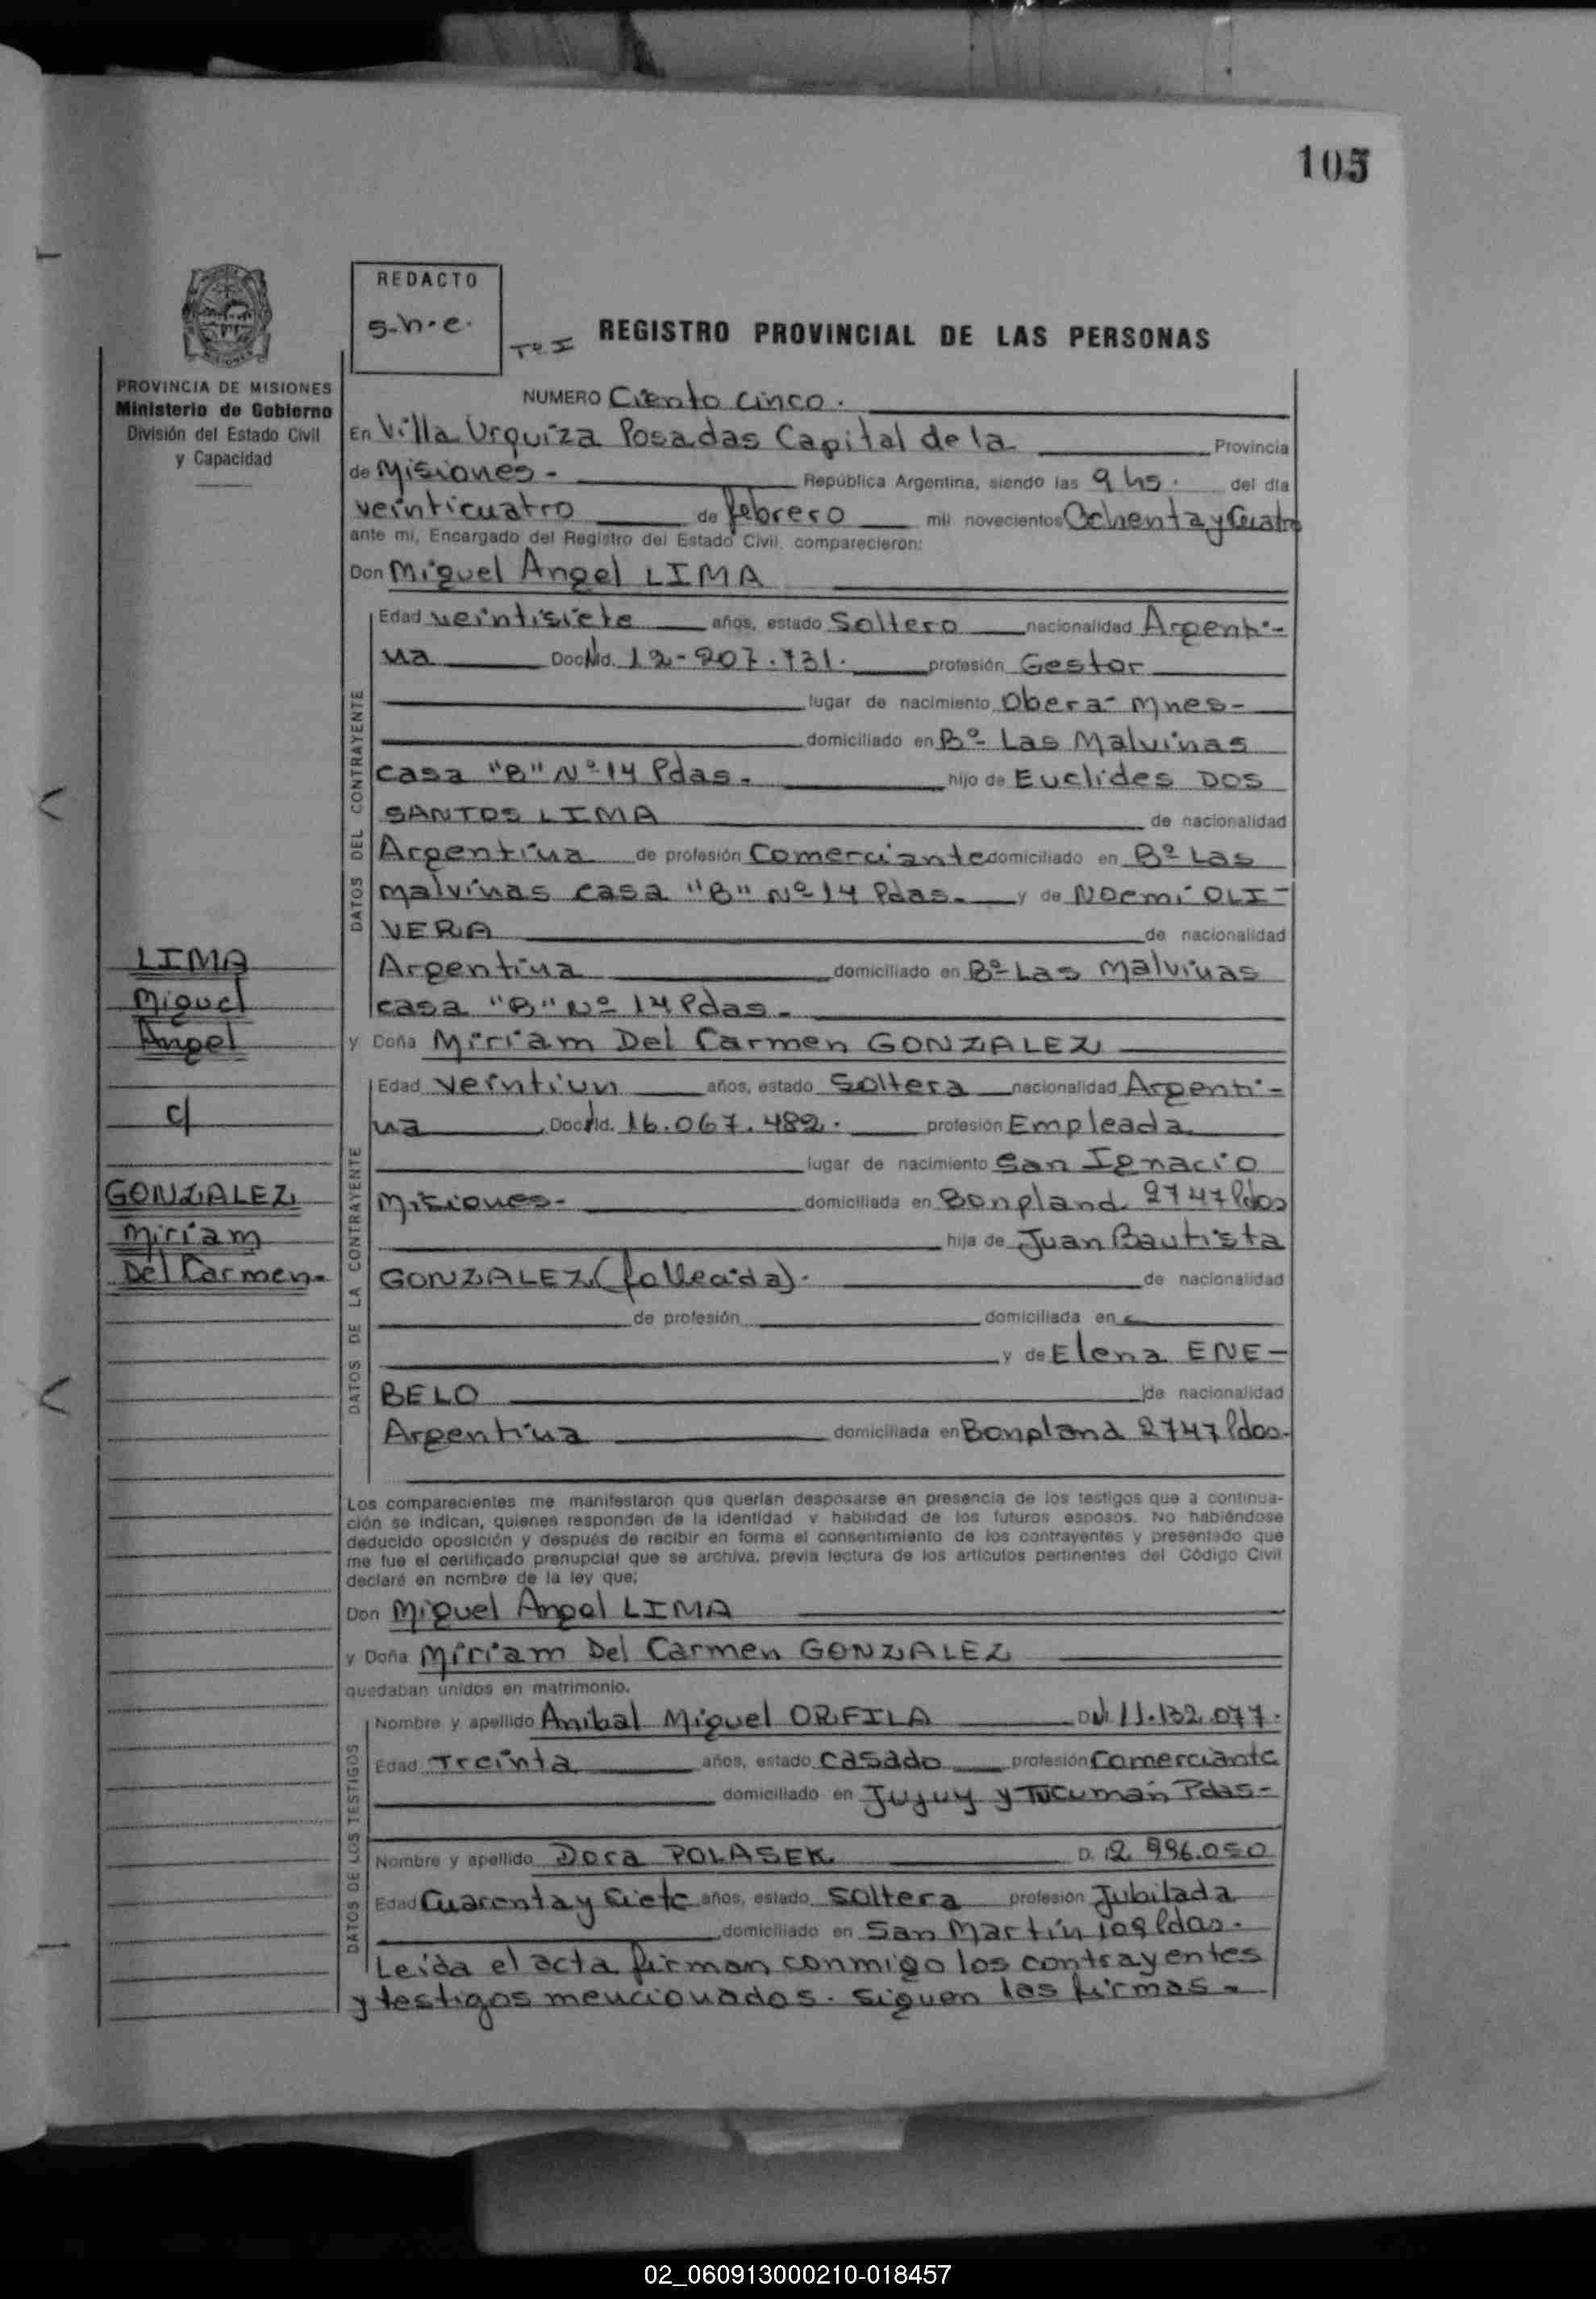 105
REDACTO
s.h.e.
Tº I
REGISTRO PROVINCIAL DE LAS PERSONAS
PROVINCIA DE MISIONES
Ministerio de Gobierno
División del Estado Civil
y Capacidad
NUMERO Ciento cinco.
En Villa Urquiza Posadas Capital de la Provincia
de Misiones- República Argentina, siendo las 9 hs. del día
veinticuatro de febrero mil novecientos Ochenta y Cuatro
ante mi, Encargado del Registro del Estado Civil, comparecieron:
Don Miguel Angel LIMA
DATOS DEL CONTRAYENTE
Edad veintisiete años, estado Soltero nacionalidad Argenti-
na Doc. Nd. 12-207.731. profesión Gestor
lugar de nacimiento Obera- Mnes-
domiciliado en Bº Las Malvinas
casa "B" Nº 14 Pdas. hijo de Euclides DOS
SANTOS LIMA de nacionalidad
Argentina de profesión Comerciante domiciliado en Bº Las
Malvinas casa "B" Nº 14 Pdas. y de Noemi OLI-
VERA de nacionalidad
Argentina domiciliado en Bº Las Malvinas
casa "B" Nº 14 Pdas.
LIMA
Miguel
Angel
c/
GONZALEZ
Miriam
Del Carmen.
y Doña Miriam Del Carmen GONZALEZ
DATOS DE LA CONTRAYENTE
Edad veintiun años, estado Soltera nacionalidad Argenti-
na Doc. Nd. 16.067.482. profesión Empleada
lugar de nacimiento San Ignacio
Misiones- domiciliada en Bonpland 2747 Pdas
hija de Juan Bautista
GONZALEZ (fallecida). de nacionalidad
de profesión domiciliada en
y de Elena ENE-
BELO de nacionalidad
Argentina domiciliada en Bonpland 2747 Pdas.
Los comparecientes me manifestaron que querían desposarse en presencia de los testigos que a continua-
ción se indican, quienes responden de la identidad y habilidad de los futuros esposos. No habiéndose
deducido oposición y después de recibir en forma el consentimiento de los contrayentes y presentado que
me fue el certificado prenupcial que se archiva, previa lectura de los artículos pertinentes del Código Civil
declaré en nombre de la ley que:
Don Miguel Angel LIMA
y Doña Miriam Del Carmen GONZALEZ
quedaban unidos en matrimonio.
DATOS DE LOS TESTIGOS
Nombre y apellido Anibal Miguel ORFILA 11.132.077.
Edad Treinta años, estado casado profesión Comerciante
domiciliado en Jujuy y Tucumán Pdas-
Nombre y apellido Dora POLASEK D. 2.996.050
Edad Cuarenta y Siete años, estado Soltera profesión Jubilada
domiciliado en San Martín 109 Pdas.
Leida el acta firman conmigo los contrayentes
y testigos mencionados. Siguen las firmas.
02_060913000210-018457